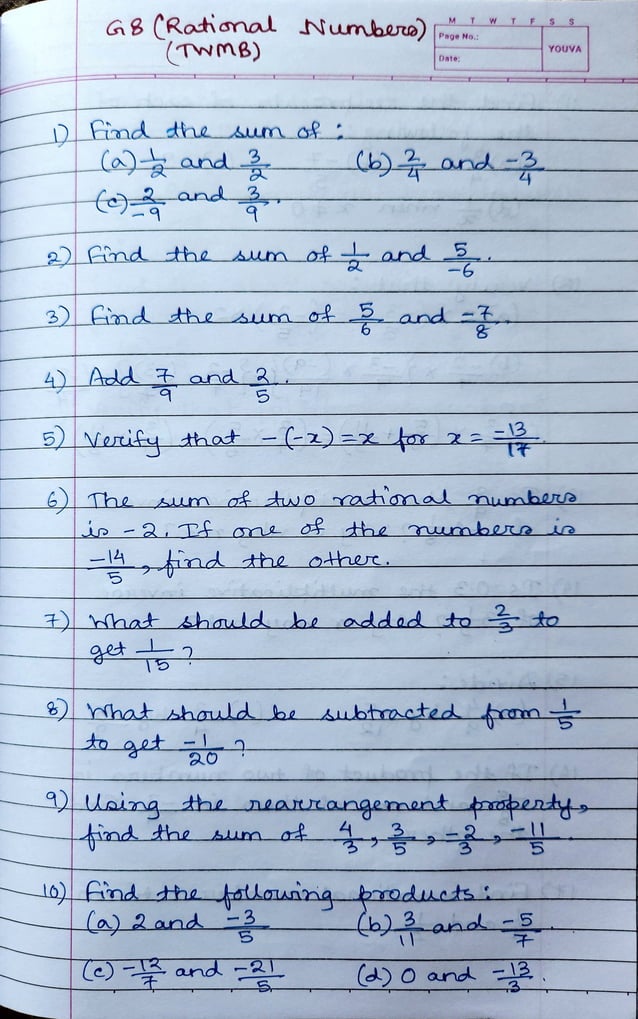 G8 (Rational Numbers)
(TWMB)
M T W T F S S
Page No.:
Date:
YOUVA
1) Find the sum of :
(a) 1/2 and 3/2 (b) 2/4 and -3/4
(c) 2/-9 and 3/9.
2) Find the sum of 1/2 and 5/-6.
3) Find the sum of 5/6 and -7/8.
4) Add 7/9 and 2/5.
5) Verify that -(-x)=x for x = -13/17.
6) The sum of two rational numbers
is -2. If one of the numbers is
-14/5, find the other.
7) What should be added to 2/3 to
get 1/15 ?
8) What should be subtracted from 1/5
to get -1/20 ?
9) Using the rearrangement property,
find the sum of 4/3, 3/5, -2/3, -11/5.
10) Find the following products :
(a) 2 and -3/5 (b) 3/11 and -5/7.
(c) -12/7 and -21/5 (d) 0 and -13/3.